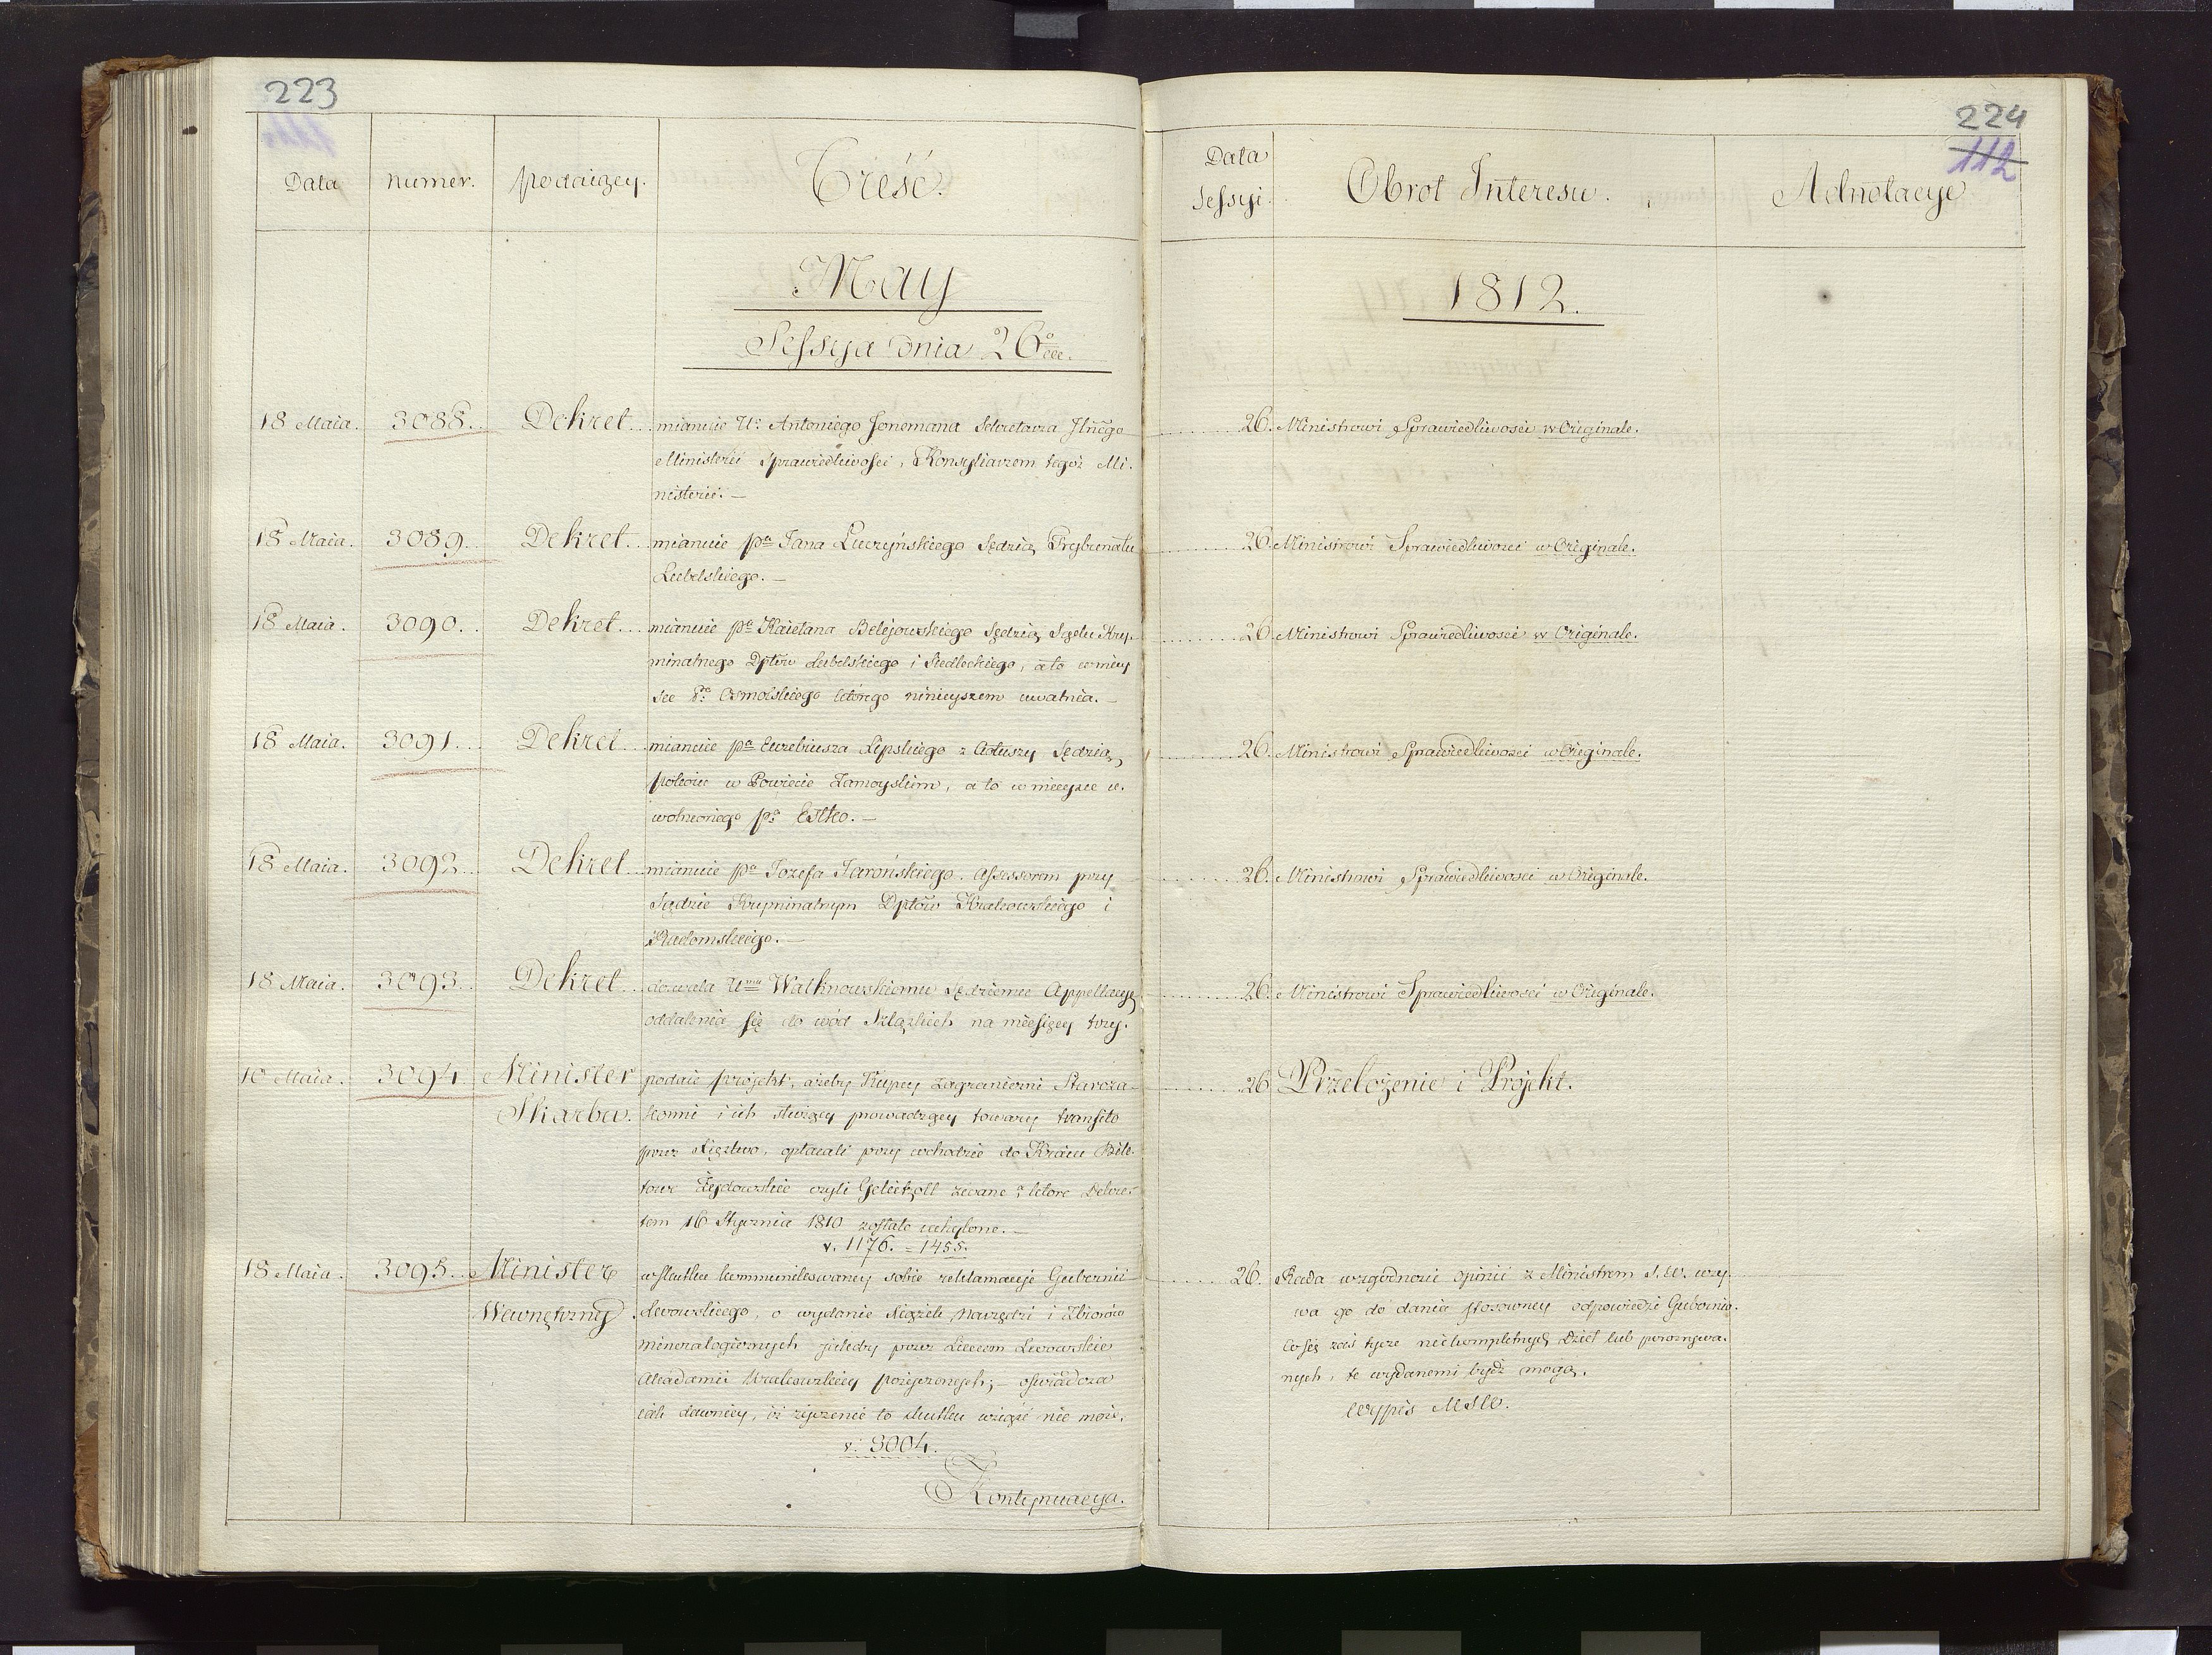 223
Data
numer.
podaiący.
Treść.
May
Sessya dnia 26o
18 Maia. 3088. Dekret mianuie Ur Antoniego Sekretarza
Ministerii Sprawiedliwości, Konsyliarzem tegoż Mi-
nisterii. —
18 Maia. 3089. Dekret mianuie pa Jana Łuczyńskiego Sędzią Trybunału
Lubelskiego. —
18 Maia. 3090. Dekret mianuie pa Kaietana Sędzią Sądu Kry-
minalnego Dptów Lubelskiego i Siedleckiego, a to w miey
sce którego ninieyszem uwalnia. —
18 Maia. 3091. Dekret mianuie pa Euzebiusza Lipskiego z Sędzią
pokoiu w Powiecie Zamoyskim, a to w mieysce u-
wolnionego pa Estko. —
18 Maia. 3092. Dekret mianuie pa Jozefa Jarońskiego. Assessorem przy
Sądzie Kryminalnym Dptów Krakowskiego i
Radomskiego. —
18 Maia. 3093. Dekret dozwala Umu Walknowskiemu Sędziemu Appellacyi
oddalenia się do wód Szląskich na miesięcy trzy.
10 Maia. 3094 Minister podaie projekt, ażeby Kupcy zagraniczni Staroza-
Skarbu. konni i ich służący prowadzący towary transito
przez Xięstwo, opłacali przy wchodzie do Kraiu Bile-
towe Żydowskie czyli Geleitzoll zwane, które Dekre-
tem 16 Stycznia 1810 zostało uchylone. —
v. 1176. = 1455.
18 Maia. 3095. Minister w skutku kommunikowaney sobie reklamacyi Gubernii
Wewnętrzny Lwowskiego, o wydanie Xiążek, Narzędzi i Zbiorów
mineralogicznych kiedy przez Liceum Lwowskie
Akademii Krakowskiey pożyczonych; — oświadcza
iak dawniey, iż życzenie to skutku wziąść nie może.
v. 3004.
Kontynuacya.
224
112
Data
Sessyi.
Obrot Interesu.
Adnotacye
1812.
26. Ministrowi Sprawiedliwości w Originale.
26. Ministrowi Sprawiedliwości w Originale.
26. Ministrowi Sprawiedliwości w Originale.
26. Ministrowi Sprawiedliwości w Originale.
26. Ministrowi Sprawiedliwości w Originale.
26. Ministrowi Sprawiedliwości w Originale.
26 Przełożenie i Projekt.
26. Rada w zgodności opinii z Ministrem S. W. wzy-
wa go do dania stosowney odpowiedzi Gubernio.
Co się zaś tycze niekompletnych Dzieł lub porozrywa-
nych, te wydanemi bydź mogą.
Wypis MSW.